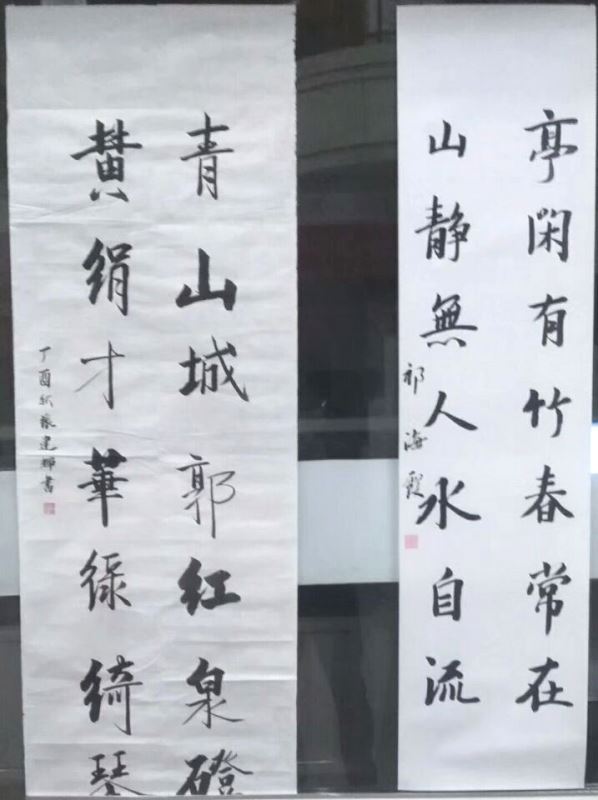 亭閑有竹春常在
山静無人水自流
祁海霞
青山城郭红泉磴
黄绢才華绿绮琴
丁酉秋張建書